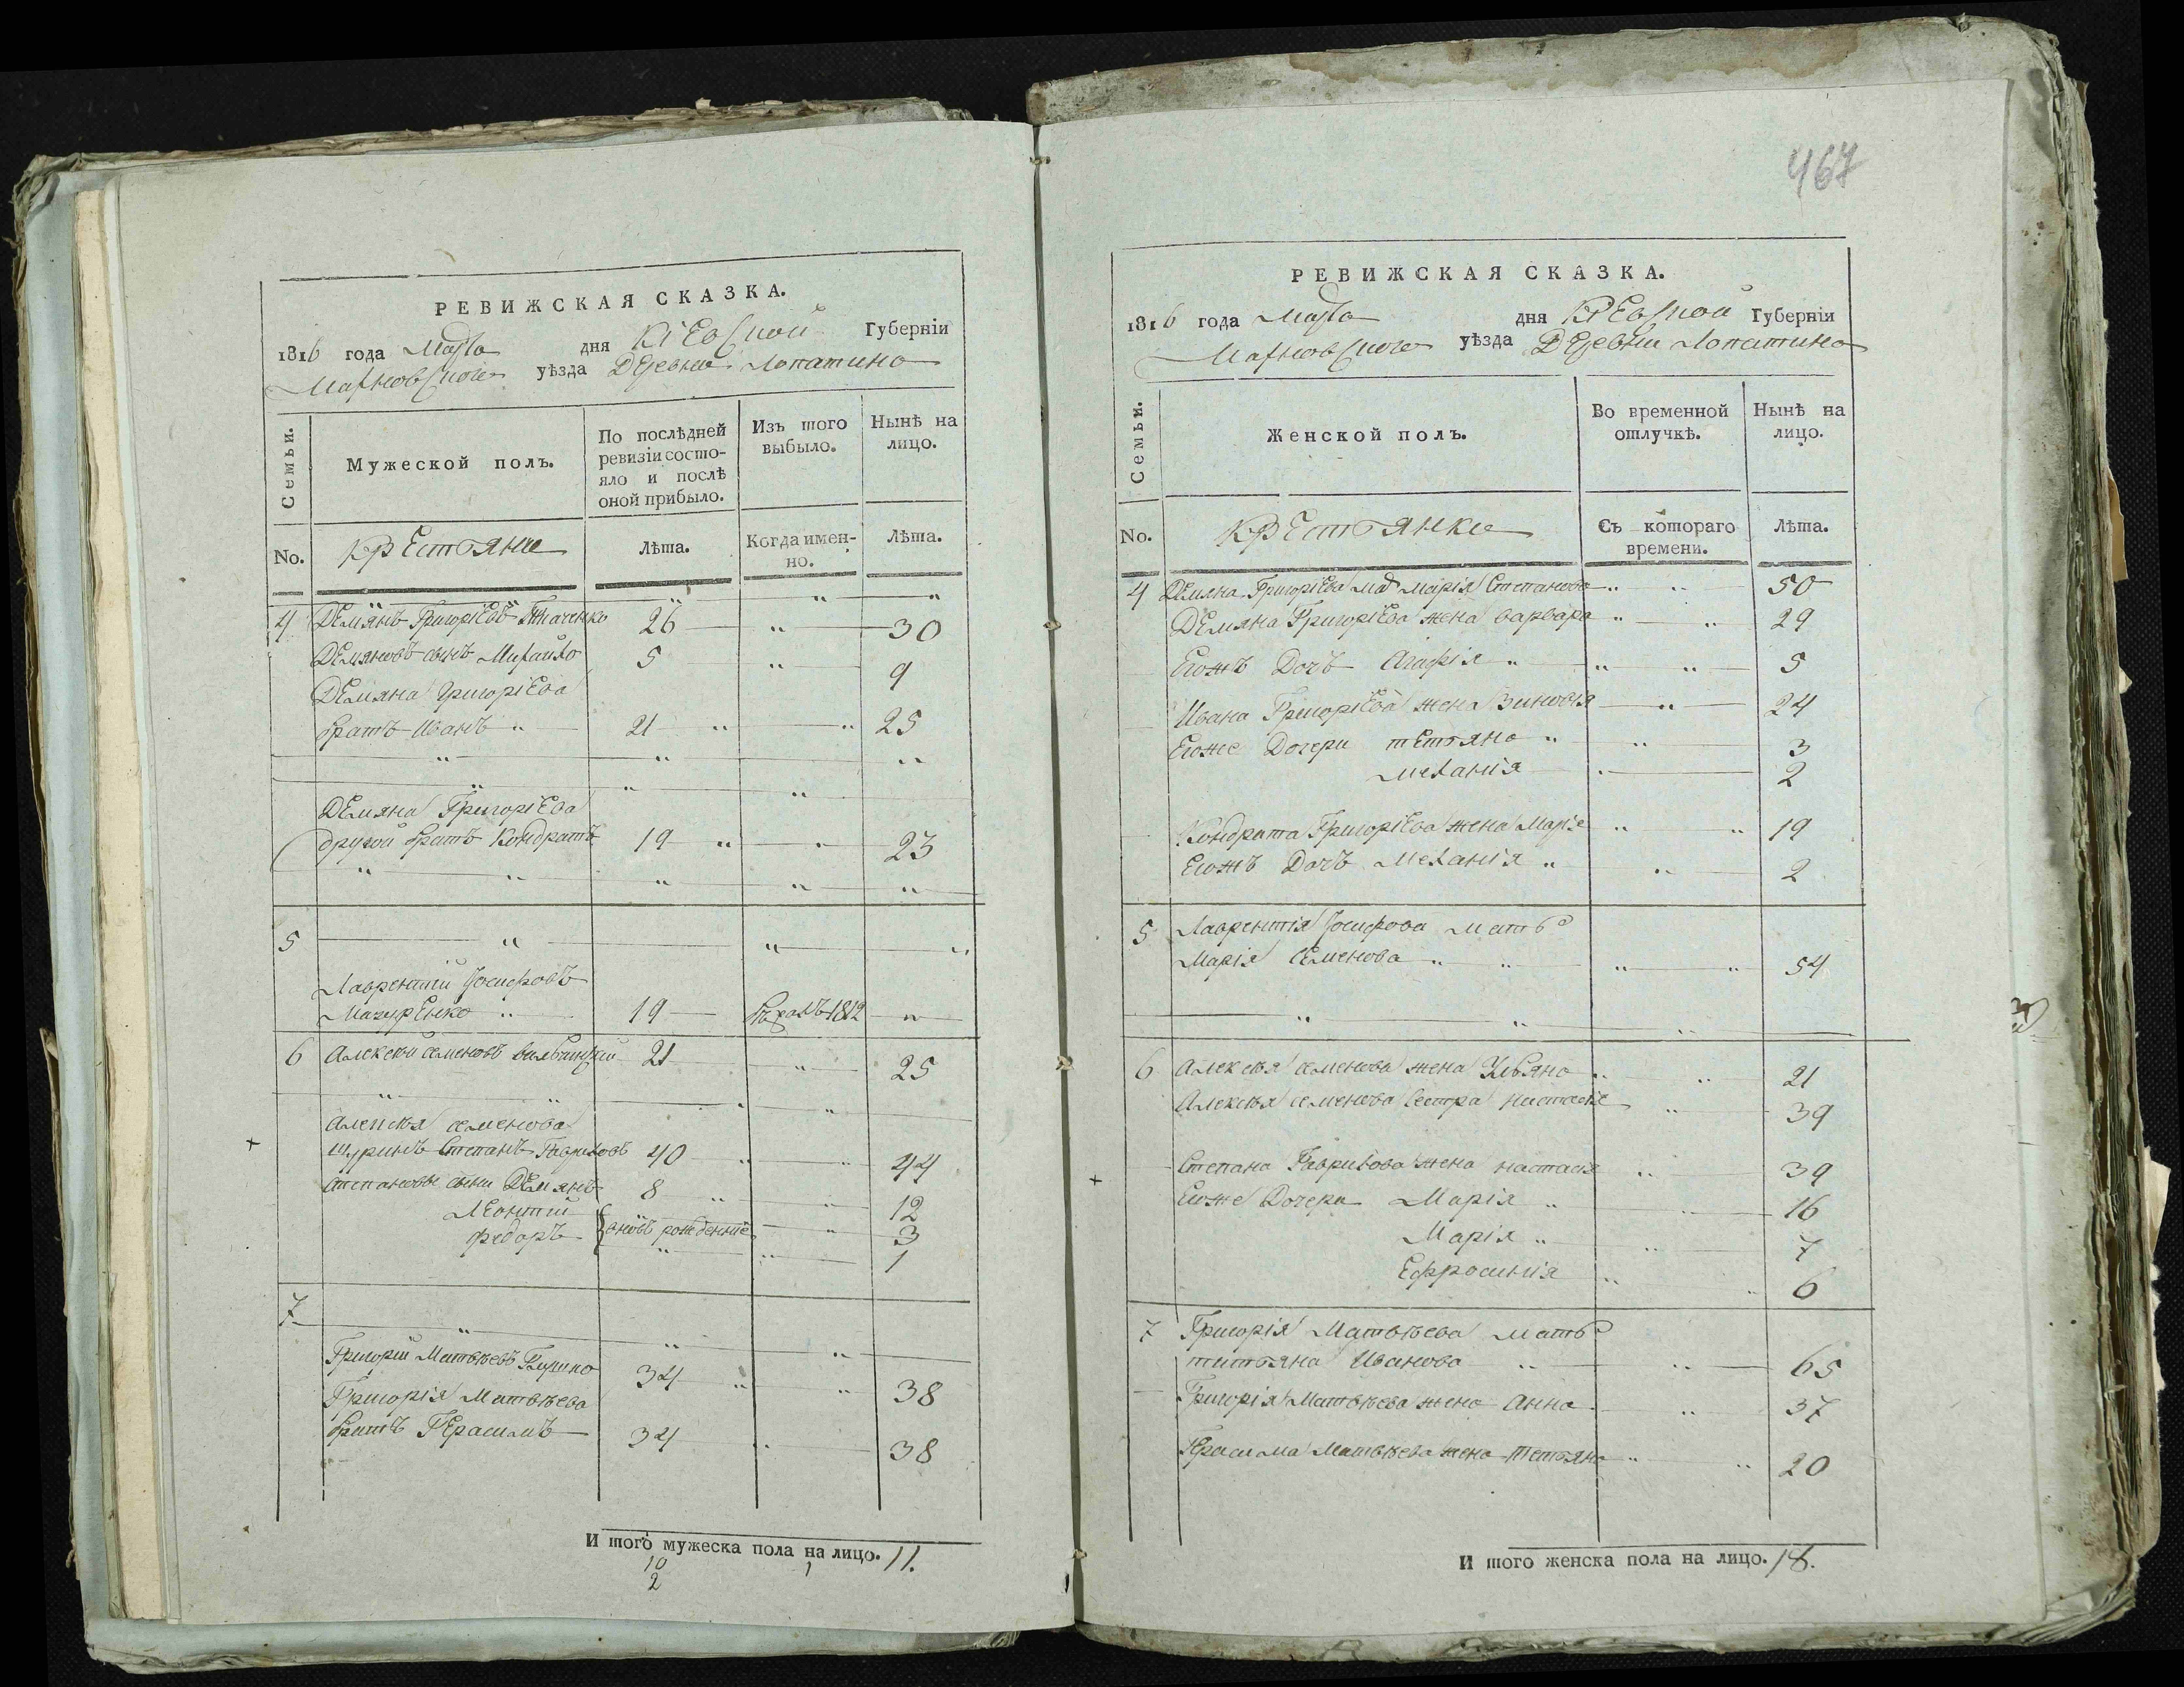 467
РЕВИЖСКАЯ СКАЗКА.
1816 года Марта дня Кіевской Губерніи
уѣзда Деревни Лопатино
Семьи.
Мужеской полъ.
По послѣдней ревизіи состояло и послѣ оной прибыло.
Изъ того выбыло.
Нынѣ на лицо.
No. Крестьяне Лѣта. Когда именно. Лѣта.
4 Демянъ Григоріевъ Ткаченко 26 " 30
Демяновъ сынъ Михайло 5 " 9
Демяна Григоріева
братъ Иванъ " 21 " " 25
Демяна Григоріева
другой братъ Кондратъ 19 " " 23
5
Лаврентий Іосифовъ
Мазуренко " 19 1812 "
6 Алексѣй Семеновъ 21 " 25
Алексѣя Семенова
шуринъ Степанъ Гавриловъ 40 " " 44
Степановы сыны Демянъ 8 " " 12
Леонтий рожденные " 3
Федоръ " " 1
7
Григорий Матвѣевъ 34 " " 38
Григорія Матвѣева
братъ Герасимъ 34 " 38
И того мужеска пола на лицо. 11.
10 1
2
РЕВИЖСКАЯ СКАЗКА.
1816 года Марта дня Кіевской Губерніи
уѣзда Деревни Лопатино
Семьи.
Женской полъ.
Во временной отлучкѣ.
Нынѣ на лицо.
No. Крестьянки Съ котораго времени. Лѣта.
4 Демяна Григоріева Марія Степанова " " 50
Демяна Григоріева жена Варвара " " 29
Егожъ Дочъ Агафія " " " 5
Ивана Григоріева жена Зиновія " 24
Егоже Дочери Тетяна " " 3
Меланія " 2
Кондрата Григоріева жена Марія " " 19
Егожъ Дочъ Меланія " " 2
5 Лаврентія Іосифова мать
Марія Семенова " " " " 54
6 Алексѣя Семенова жена Ульяна " " 21
Алексѣя Семенова сестра Настасія " 39
Степана Гаврилова жена Настасія " 39
Егоже Дочери Марія " " 16
Марія " " 7
Ефросинія " " 6
7 Григорія Матвѣева мать
Титьяна Иванова " " 65
Григорія Матвѣева жена Анна " 37
Герасима Матвѣева жена Тетьяна " " 20
И того женска пола на лицо. 18.